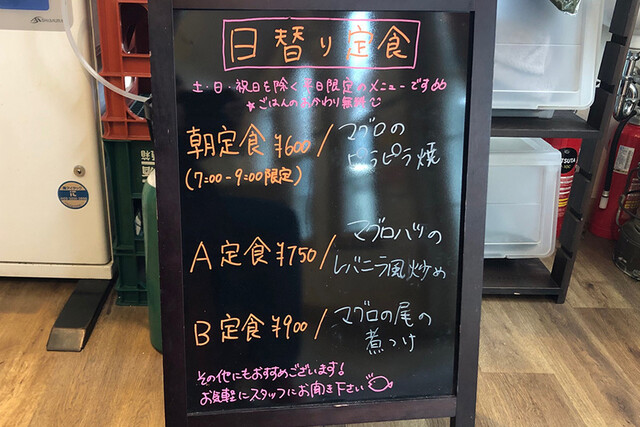 日替り定食
土・日・祝日を除く平日限定のメニューです
★ごはんのおかわり無料
朝定食 ¥600 / マグロの
ピラピラ焼
(7:00-9:00限定)
A定食 ¥750 / マグロハツの
レバニラ風炒め
B定食 ¥900 / マグロの尾の
煮つけ
その他にもおすすめございます!
お気軽にスタッフにお聞き下さい